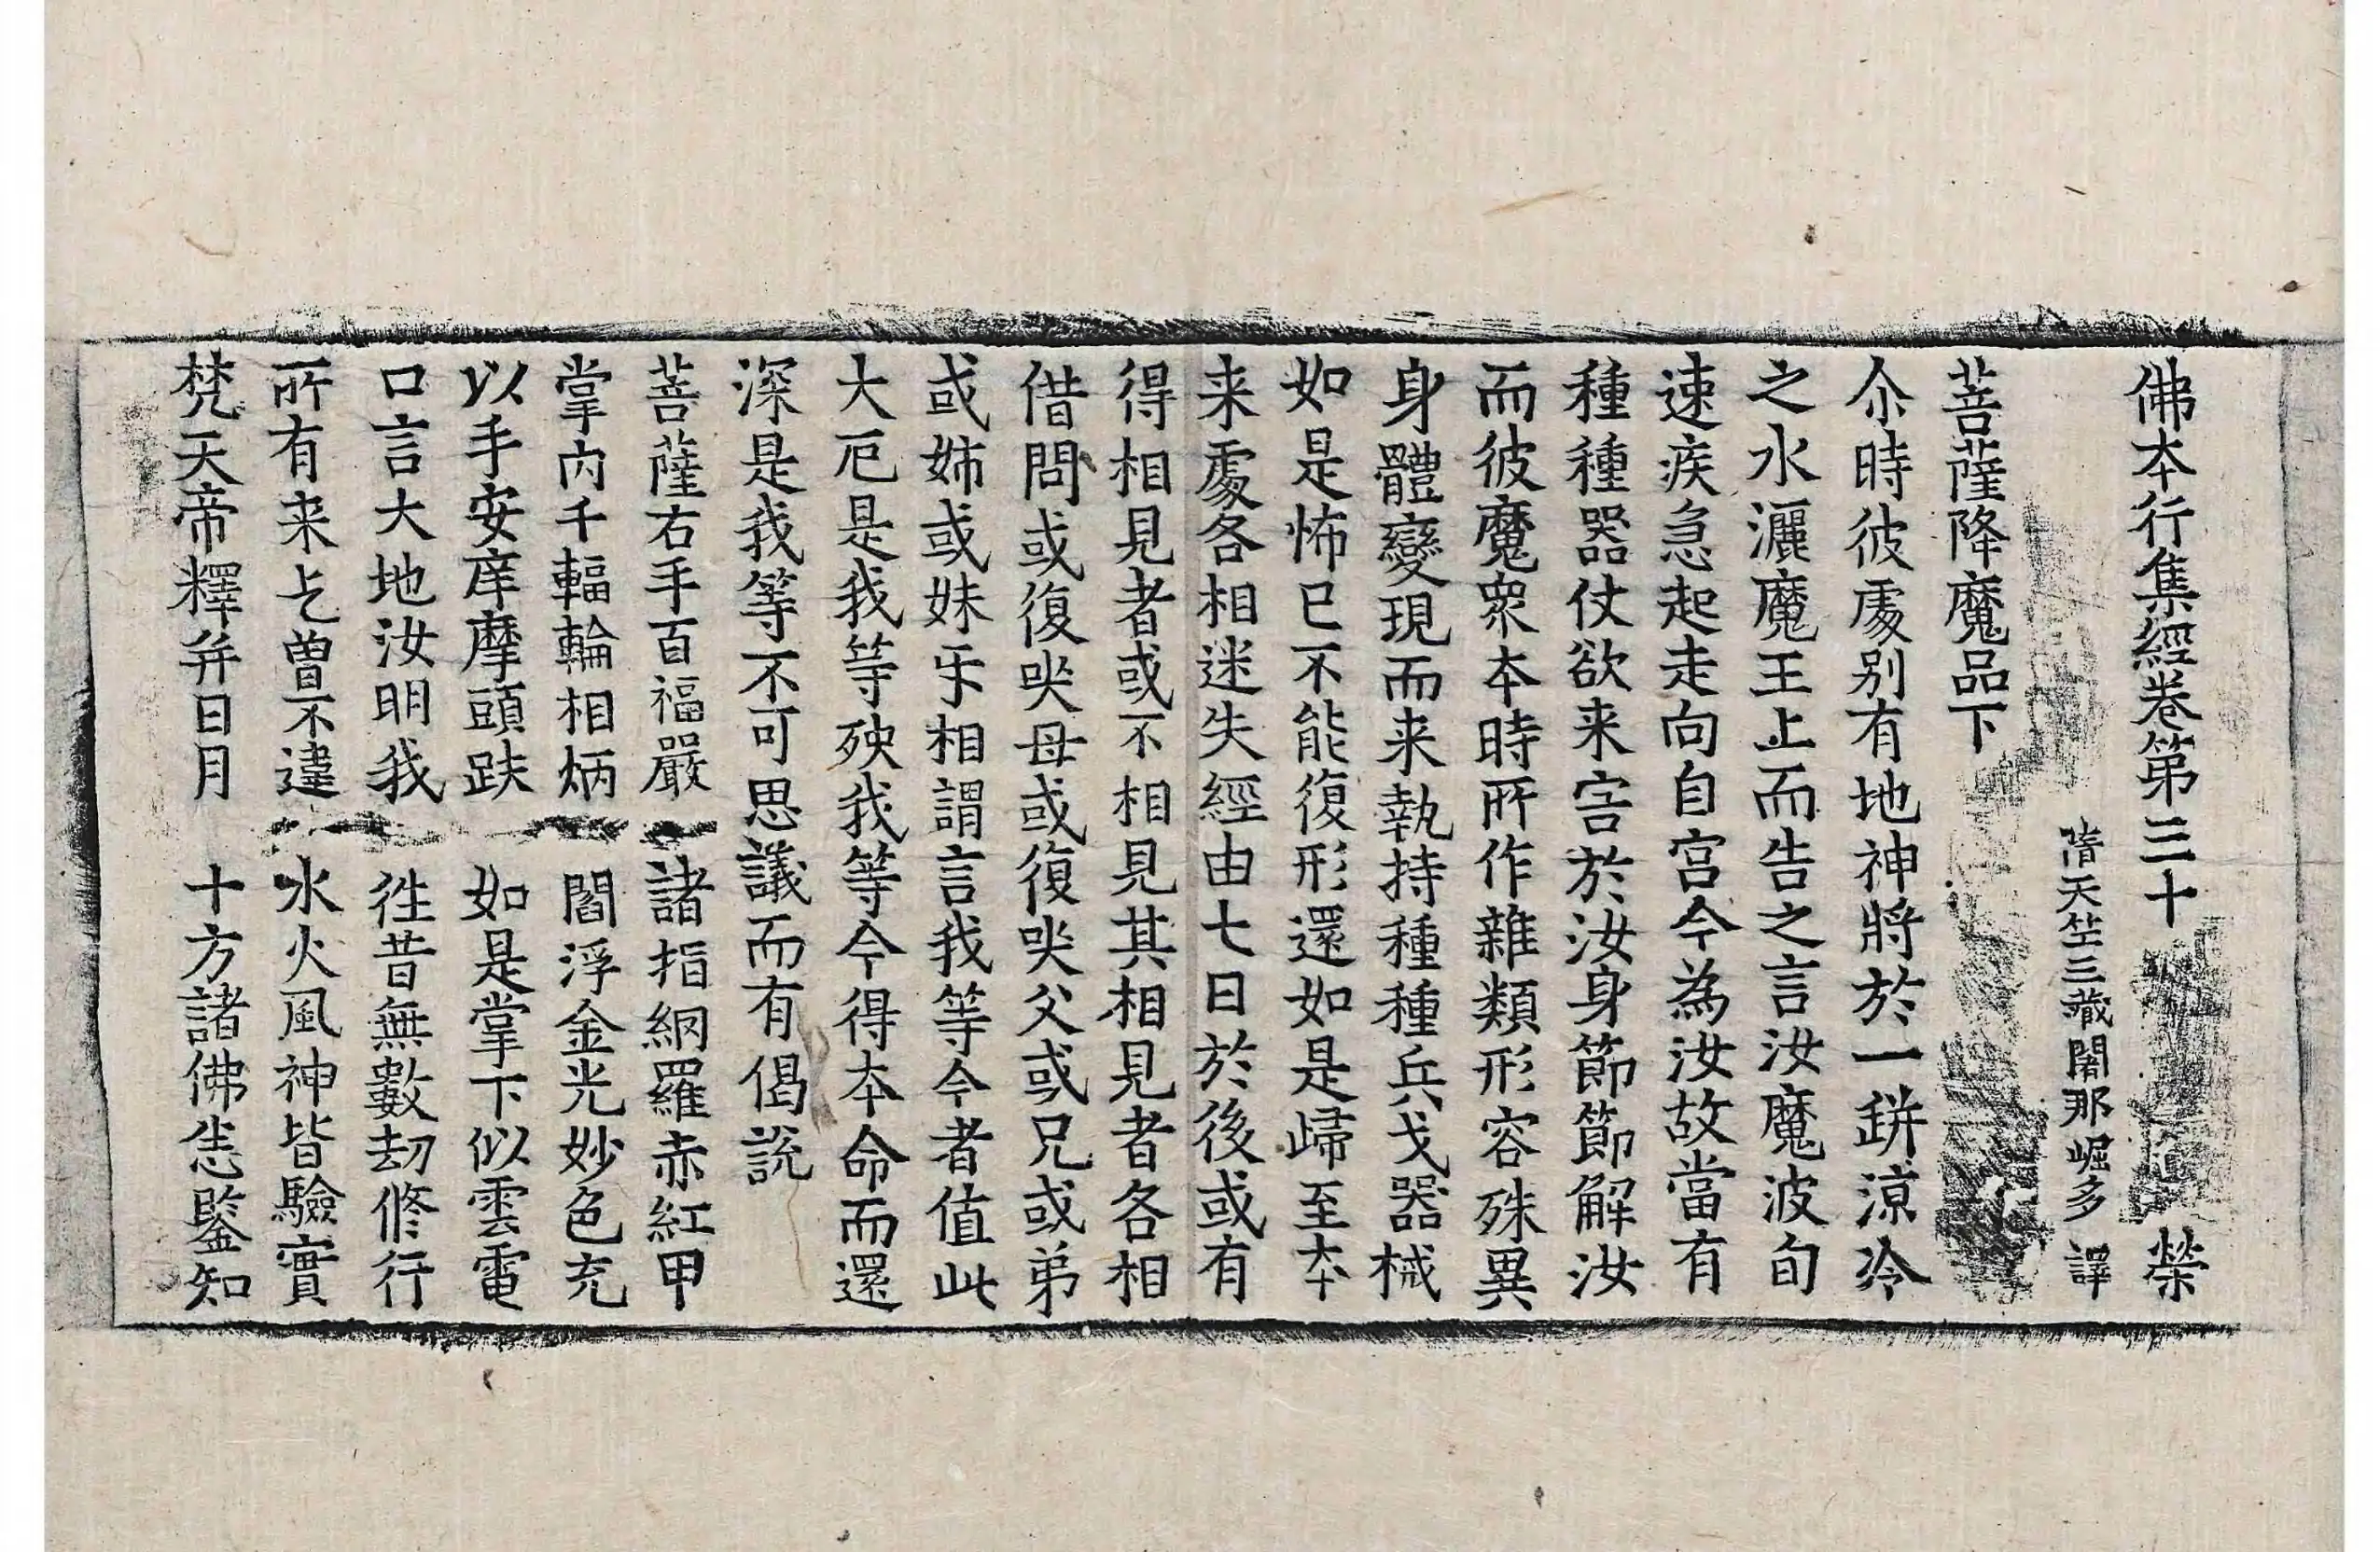 佛本行集經卷第三十 榮
隋天竺三藏闍那崛多 譯
菩薩降魔品下
尒時彼處別有地神將於一缾涼冷
之水灑魔王上而告之言汝魔波旬
速疾急起走向自宮今為汝故當有
種種器仗欲来害於汝身節節解汝
而彼魔衆夲時所作雜類形容殊異
身體變現而来執持種種兵戈器械
如是怖已不能復形還如是歸至夲
来處各相迷失經由七日於後或有
得相見者或不相見其相見者各相
借問或復哭母或復哭父或兄或弟
或姊或妹㸦相謂言我等今者值此
大厄是我等殃我等今得夲命而還
深是我等不可思議而有偈說
菩薩右手百福嚴 諸指網羅赤紅甲
掌內千輻輪相炳 閻浮金光妙色充
以手安庠摩頭趺 如是掌下似雲電
口言大地汝明我 徃昔無數劫修行
所有来乞曾不違 水火風神皆驗實
梵天帝釋并日月 十方諸佛悉鑒知